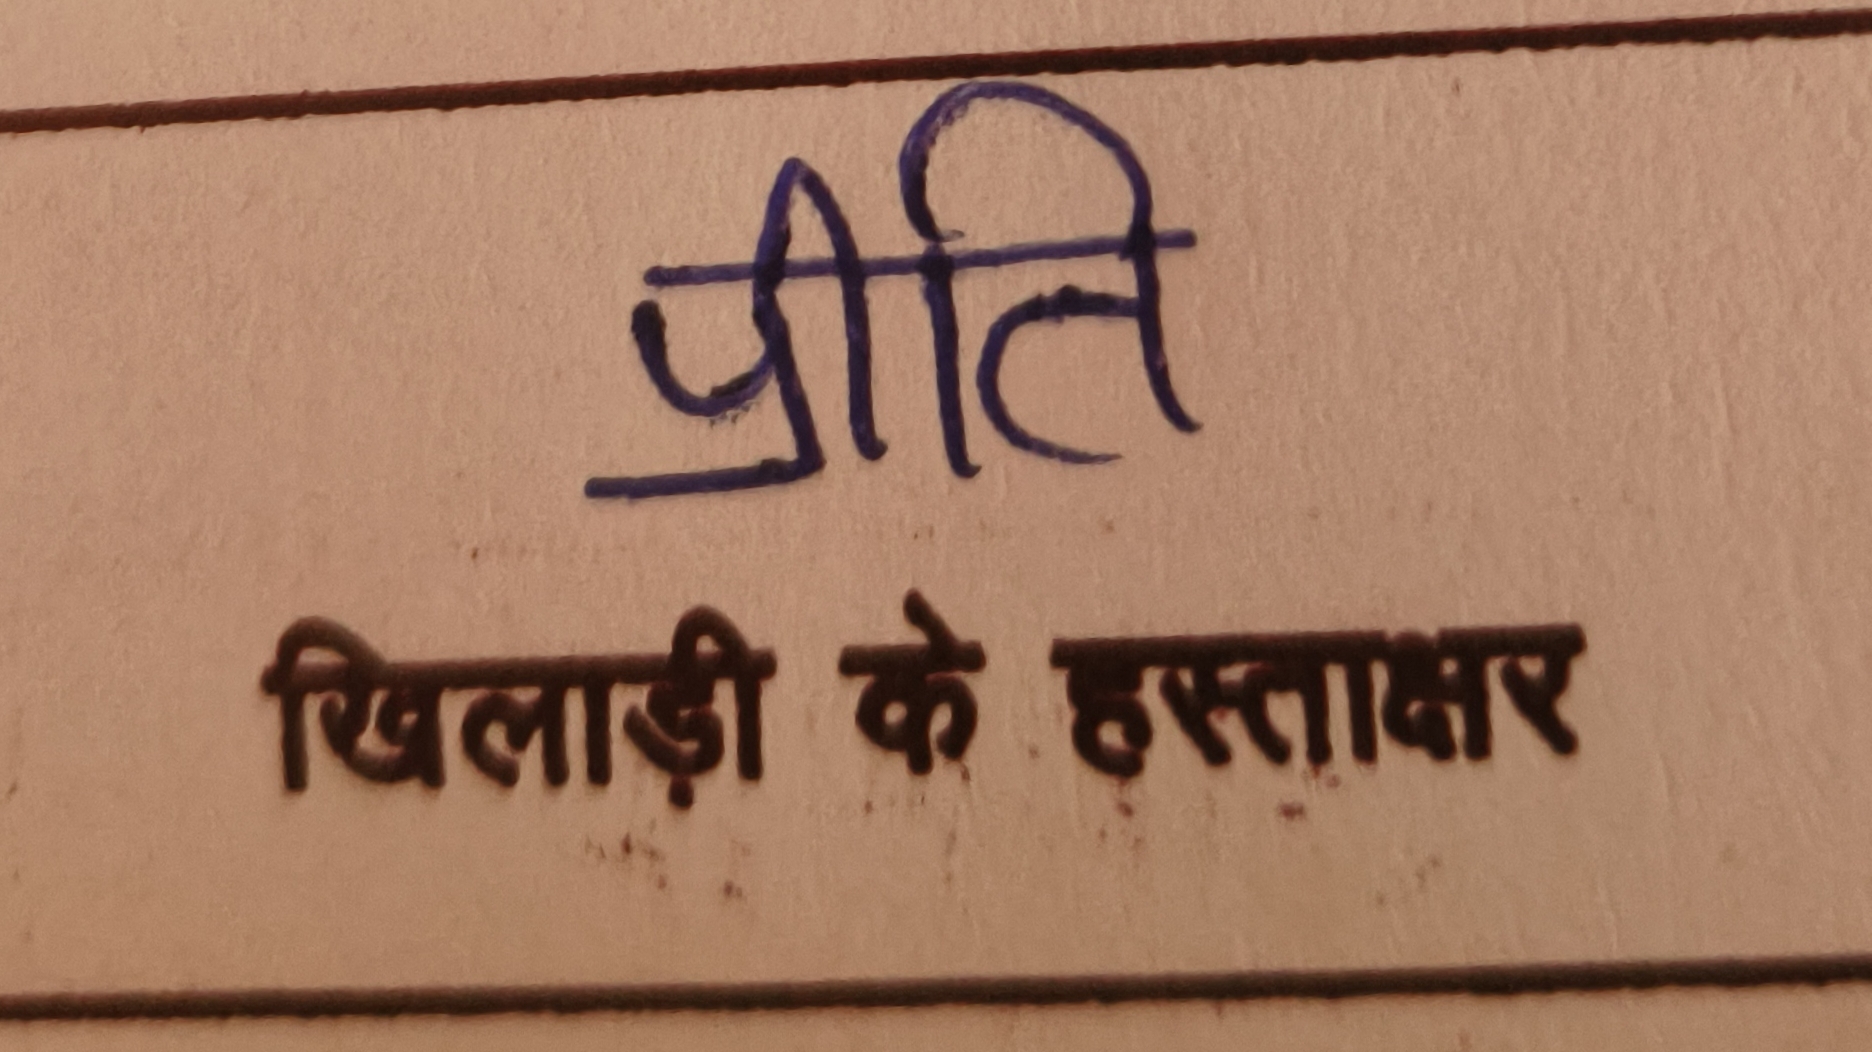 प्रीति
खिलाड़ी के हस्ताक्षर